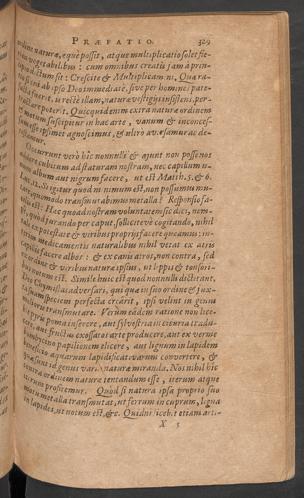 PRÆFATIO. 329
ordine naturæ, eque possit, atque multiplicatio solet fie-
vegetabilibus: cum omnibus creatis jam à prin-
dictum sit: Crescite & Multiplicamini, Quare
ab ipso Deo immediatè, sive per homines pate-
fuerit, si rectè illam, naturæ vestigiis insistens, per-
poterit. Quicquid enim extra naturæ ordinem
suscipitur in hac arte, vanum & inconces-
ipsimet agnoscimus, & ultro
Occurrunt verò hîc nonnulli & ajunt non posse nos
addere cubitum ad staturam nostram, nec capillum
album aut nigrum facere, ut est Matth. 5. & 6.
Luc. 12. Si igitur quod minimum est, non possumus mu-
quomodo transmutabimus metalla? Responsio fa-
est: Hæc quoad nostram voluntatem sic dici, nem-
quod jurando per caput, sollicitè vè cogitando, nihil
ex potestate & viribus propriis facere queamus: in-
medicamentis naturalibus nihil vetat ex atris
capillis facere albos: & ex canis atros, non contra, sed
ordine & viribus naturæ ipsius, ut lippis & tonsori-
bus notum est. Simile huic est quod nonnulli dictitant,
Chymistas adversari, qui quæ in suo ordine & jux-
ta suam speciem perfecta crearit, ipsi velint in genus
transmutare. Verum eadem ratione non lice-
poma inserere, aut sylvestria in
aut fructus exossatos arte producere, aut ex vermi-
bombycino papilionem elicere, aut lignum in lapidem
aquarum lapidificatarum convertere, &
id genus varia naturæ miranda. Nos nihil hîc
extra ordinem naturæ tentandum esse, iterum atque
iterum profitemur. Quod si natura ipsa proprio suo
motu metalla transmutat, ut ferrum in cuprum, ligna
in lapides, ut notum est, &c. Quidni licebit etiam arti-
X 5